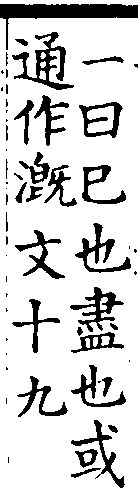 一曰巳也盡也或
通作溉文十九